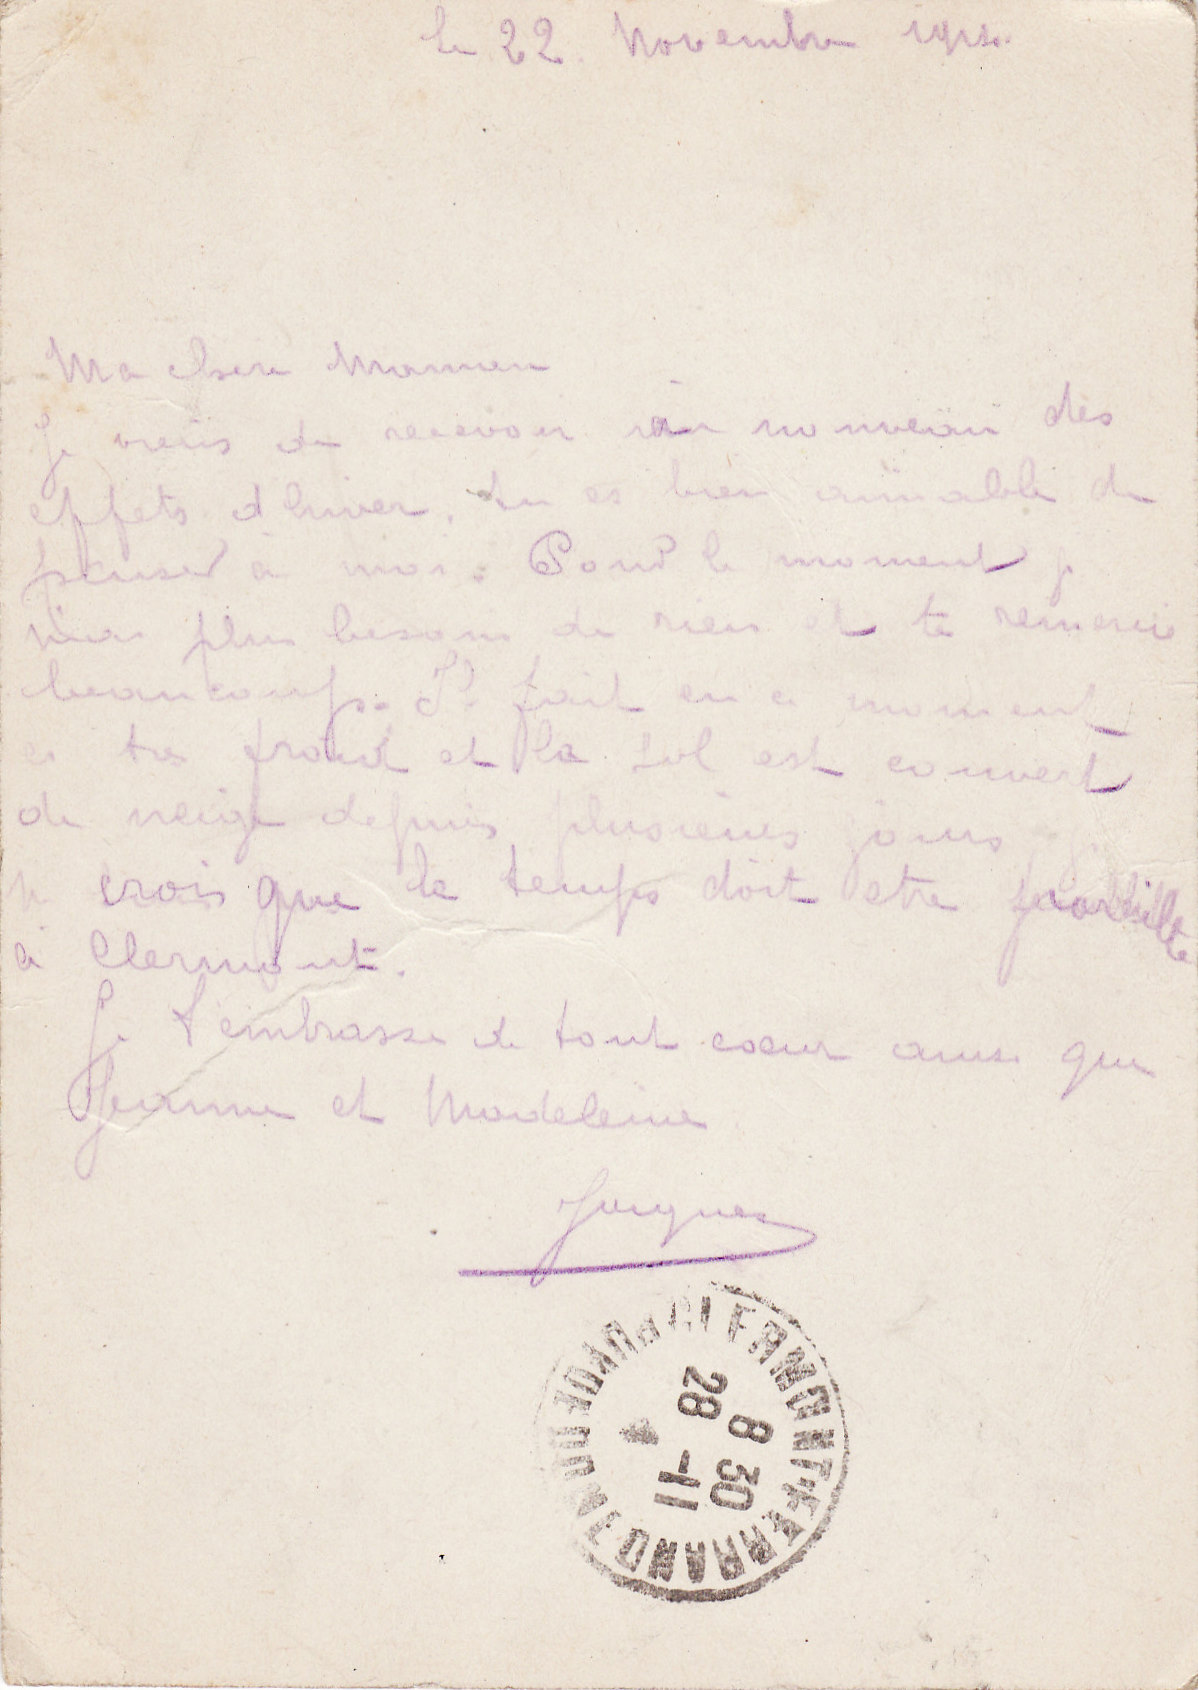 le 22 Novembre 1914
Ma chere Maman
Je viens de recevoir à nouveau des
effets d'hiver. tu es bien aimable de
penser à moi. Pour le moment je
n'ai plus besoin de rien et te remercie
beaucoup. Il fait en ce moment
ci tres froid et le sol est couvert
de neige depuis plusieurs jours je
crois que le temps doit etre
à Clermont.
Je t'embrasse de tout coeur ainsi que
Jeanne et Madeleine
Jacques
CLERMONT-FERRAND
PUY-DE-DOME
8 30
28 -11